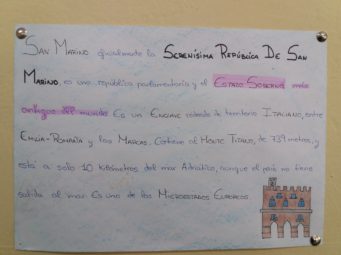 SAN MARINO oficialmente la SERENÍSIMA REPÚBLICA DE SAN
MARINO, es una república parlamentaria y el ESTADO SOBERANO más
antiguo del mundo Es un ENCLAVE rodeado de territorio ITALIANO, entre
EMILIA-ROMAÑA y las MARCAS. Contiene al MONTE TITANO, de 739 metros, y
está a solo 10 kilómetros del mar Adriático, aunque el país no tiene
salida al mar. Es uno de los MICROESTADOS EUROPEOS.